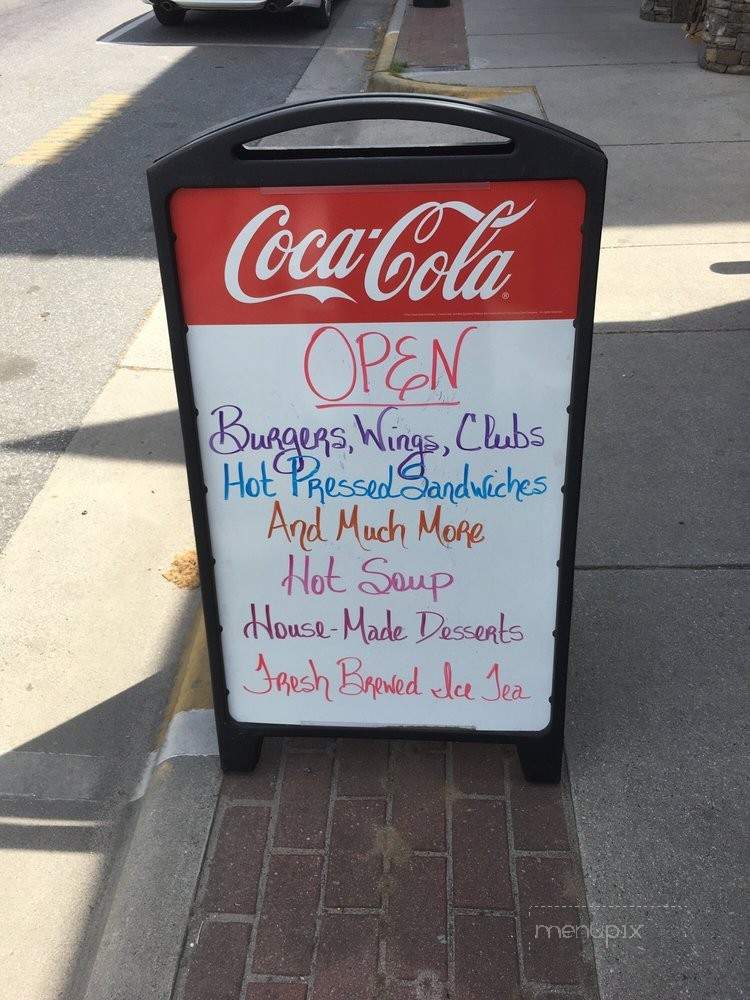 Coca-Cola
OPEN
Burgers, Wings, Clubs
Hot Pressed Sandwiches
And Much More
Hot Soup
House-Made Desserts
Fresh Brewed Ice Tea
menupix